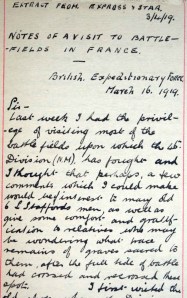 EXTRACT FROM EXPRESS & STAR
3/4/19.
NOTES OF A VISIT TO BATTLE-
FIELDS IN FRANCE.
British Expeditionary Force
March 16. 1919.
Sir-
Last week I had the privil-
ege of visiting most of the
battlefields upon which the 46th
Division (N.M.) has fought and
I thought that perhaps, a few
comments which I could make
would be of interest to many old
S. Staffords men, as well as
give some comfort and gratif-
ication to relatives who may
be wondering what was
remains of graves sacred to
them, after the full tide of battle
had crossed and recrossed these
spots. I first visited the